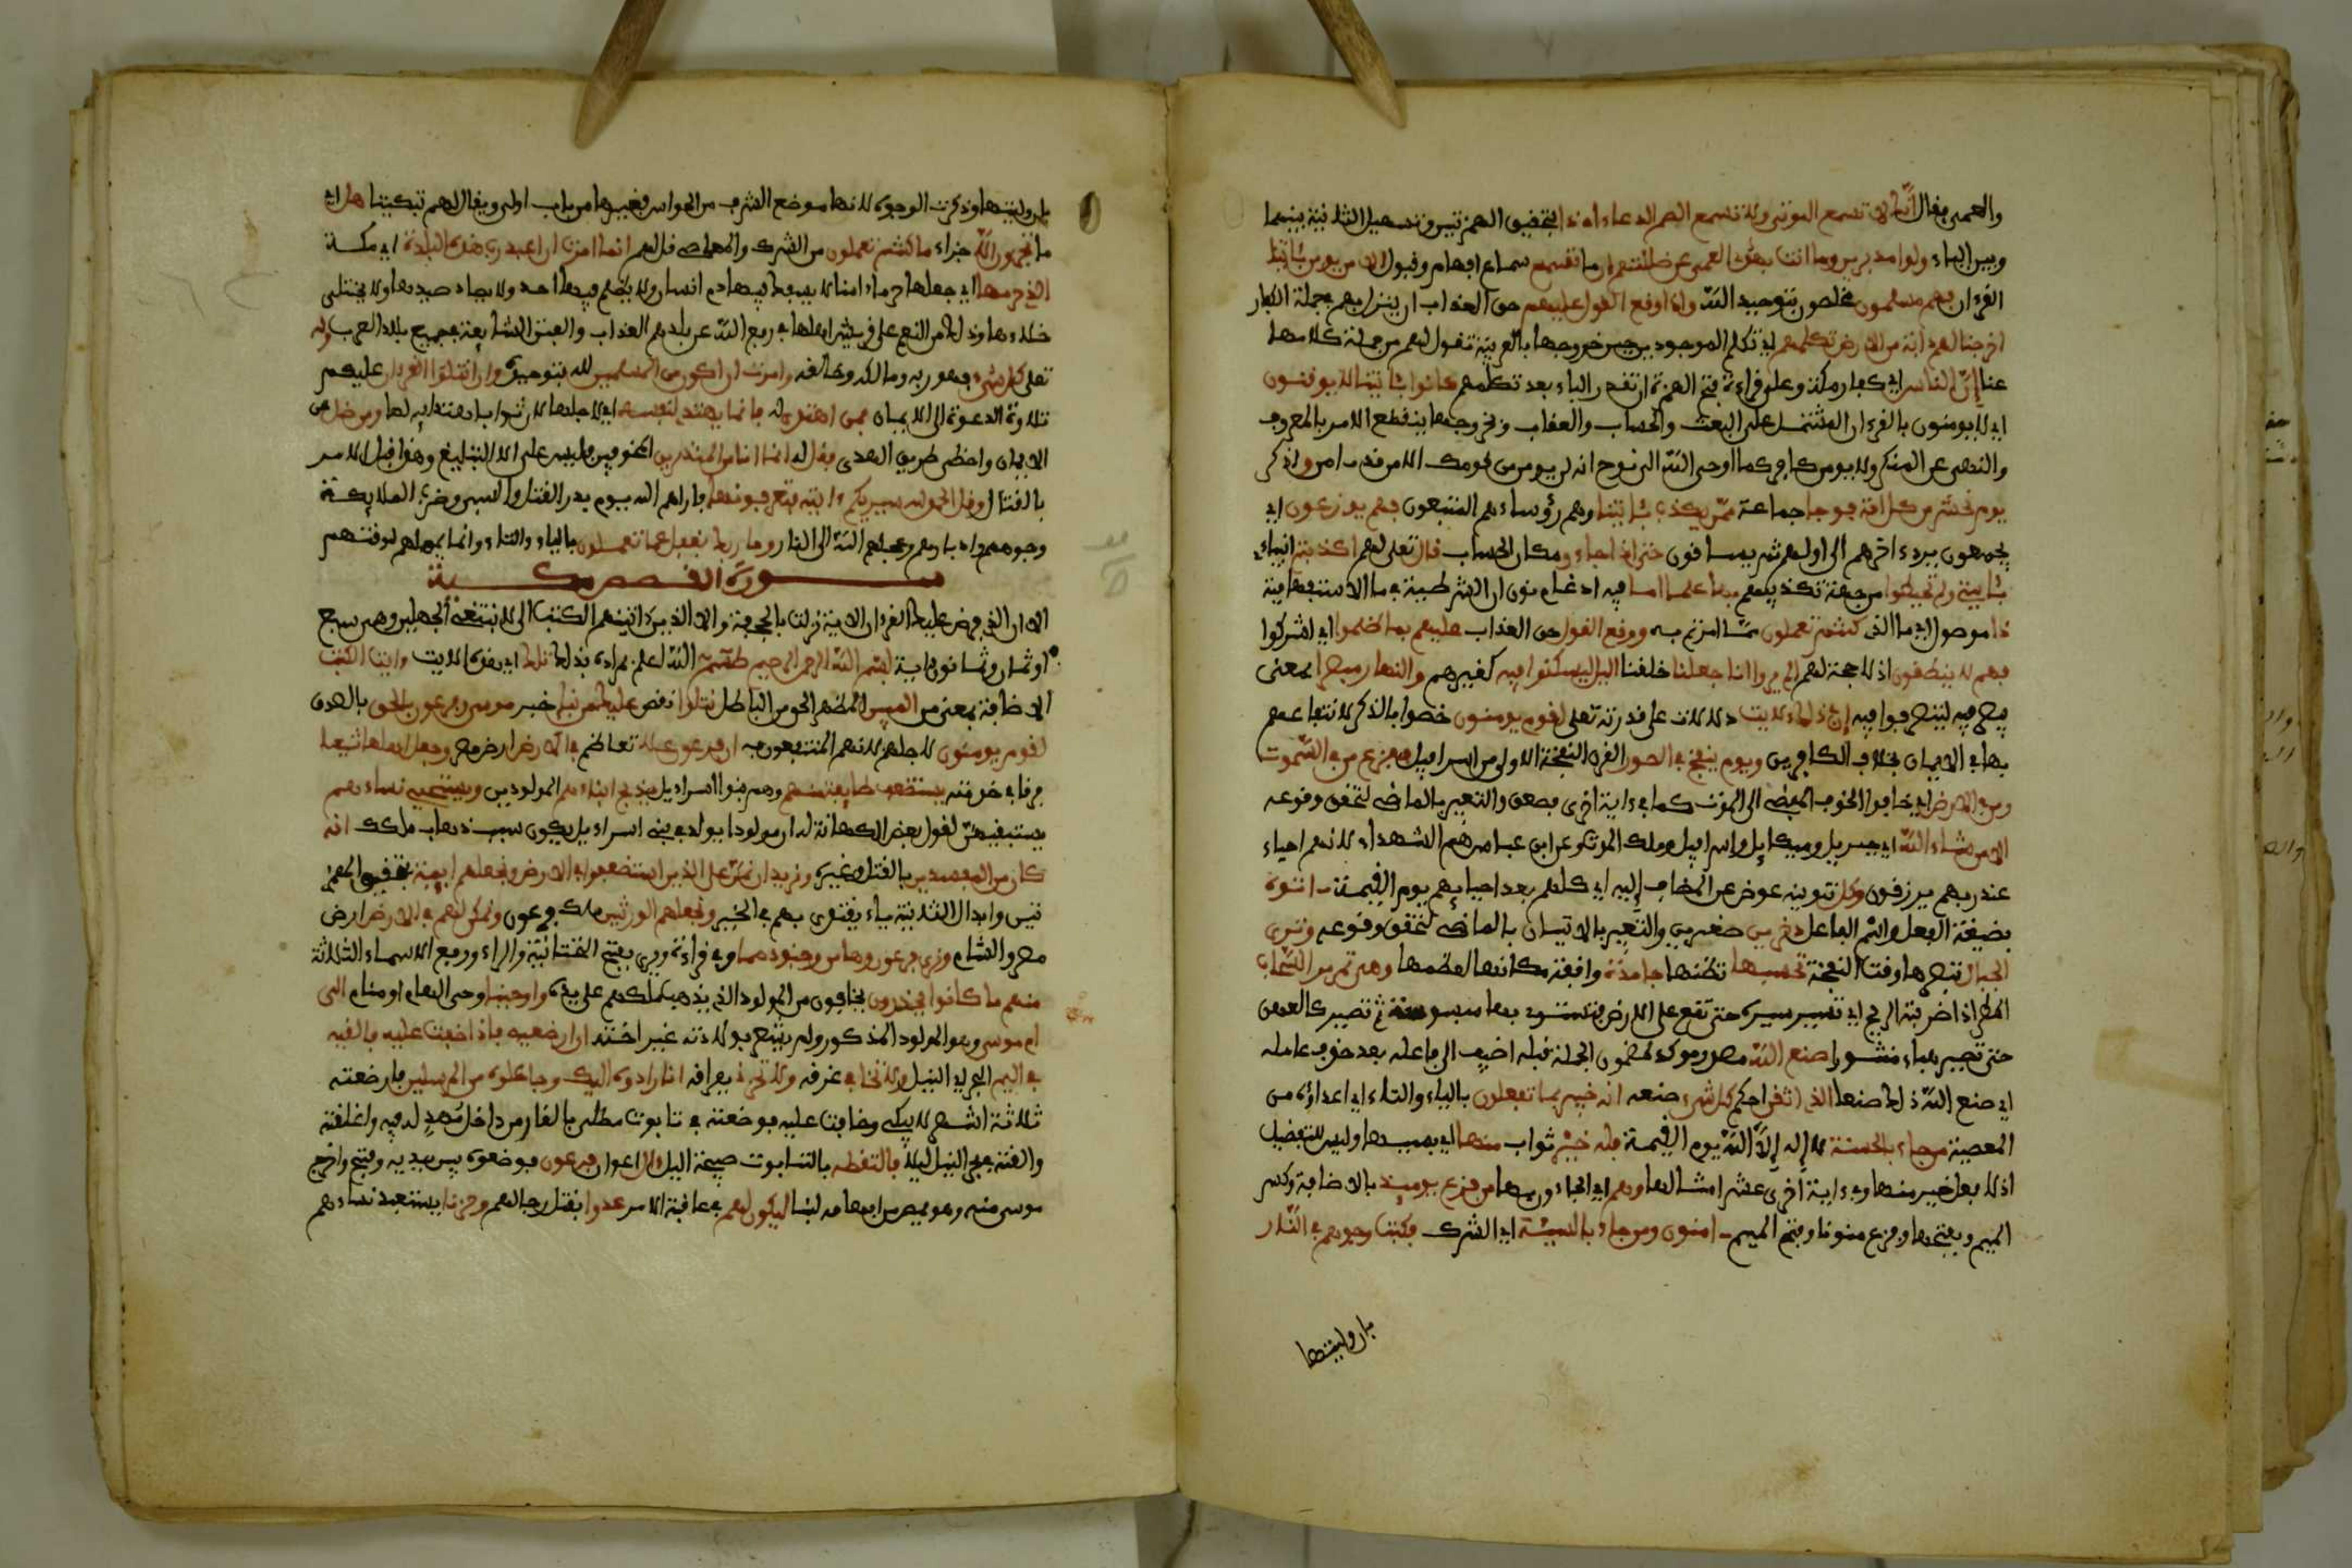 والعمي فقال إنك لا تسمع الموتى ولا تسمع الصم الدعاء إذا بتحقيق الهمزتين وتسهيل الثانية بينها
وبين الياء ولوا مدبرين وما أنت بهد العمي عن ضلالتهم إن ما تسمع سماع إفهام وقبول إلا من يؤمن بـٔايتنا
القرءان فهم مسلمون مخلصون بتوحيد الله وإذا وقع القول عليهم حق العذاب أن ينزل بهم في جملة الكفار
أخرجنا لهم دابة من الأرض تكلمهم أي تكلم الموجودين حين خروجها بالعربية تقول لهم من جملة كلامها
عنا إن الناس أي كفار مكة وعلى قراءة فتح الهمزة ان تقدر الباء بعد تكلمهم كانوا بـٔايتنا لا يوقنون
أي لا يومنون بالقرءان المشتمل على البعث والحساب والعقاب وبخروجها ينقطع الأمر بالمعروف
والنهي عن المنكر ولا يومن كافر كما أوحى الله إلى نوح انه لن يومن من قومك إلا من قد ـامن واذكر
يوم نحشر من كل أمة فوجا جماعة ممن يكذب بـٔايتنا وهم رؤساءهم المتبعون فهم يوزعون أي
يجمعون برد ءاخرهم إلى أولهم ثم يساقون حتى إذا جاءو مكان الحساب قال تعلى لهم أكذبتم أنبياءي
بـٔايتي ولم تحيطوا من جهة تكذيبهم بها علما أما فيه إدغام نون ان الشرطية في ما الاستفهامية
ذا موصول أي ما الذي كنتم تعملون مما امرتم به ووقع القول حق العذاب عليهم بما ظلموا أي اشركوا
فهم لا ينطقون إذ لا حجة لهم ألم يروا أنا جعلنا خلقنا اليل ليسكنوا فيه كغيرهم والنهار مبصرا بمعنى
يبصر فيه ليتصرفوا فيه إن في ذلك لأيت دلالات على قدرته تعلى لقوم يومنون خصوا بالذكر لانتفاعهم
بها في الايمان بخلاف الكافرين ويوم ينفخ في الصور القرن النفخة الاولى من إسرافيل ففزع من في السموت
ومن في الأرض أي خافوا الخوف المفضي إلى الموت كما في ءاية أخرى فصعق والتعبير بالماضي لتحقق وقوعه
إلا من شاء الله أي جبريل وميكاءيل وإسرافيل وملك الموت وعن ابن عباس هم الشهداء لأنهم أحياء
عند ربهم يرزقون وكل تنوينه عوض عن المضاف إليه أي كلهم بعد إحيائهم يوم القيمة ـاتوه
بصيغة الفعل واسم الفاعل دخرين صغرين والتعبير بالاتيان بالماضي لتحقق وقوعه وترى
الجبال تبصرها وقت النفخة تحسبها تظنها جامدة واقفة مكانها لعظمها وهي تمر مر السحاب
المطر إذا ضربته الريح أي تسير سيره حتى تقع على الأرض فتستوي بها مبسوسة ثم تصير كالعهن
حتى تصير هباء منثورا صنع الله مصدر موكد لمضمون الجملة قبله أضيف إلى فاعله بعد حذف عامله
أي صنع الله ذلك صنعا الذي أتقن أحكم كل شيء صنعه انه خبير بما تفعلون بالياء والتاء أي أعداؤه من
المعصية من جاء بالحسنة لا إله إلا الله يوم القيمة فله خير ثواب منها أي بسببها وليس للتفضيل
إذ لا فعل خير منها وفي ءاية أخرى عشر أمثالها وهم أي الجاءون بها من فزع يومئذ بالاضافة وكسر
الميم وبفتحها وفزع منونا وفتح الميم ـامنون ومن جاء بالسيئة أي الشرك فكبت وجوههم في النار
بأن وليتها
بأن وليتها وذكرت الوجوه لأنها موضع الشرف من الحواس فغيرها من باب أولى ويقال لهم تبكيتا هل أي
ما تجزون إلا جزاء ما كنتم تعملون من الشرك والمعاصي قل لهم إنما أمرت أن أعبد رب هذه البلدة أي مكة
الذي حرمها أي جعلها حرما ءامنا لا يسفك فيها دم إنسان ولا يظلم فيها أحد ولا يصاد صيدها ولا يختلى
خلاءها وذلك من النعم على قريش أهلها في رفع الله عن بلدهم العذاب والفتن الشايعة في جميع بلاد العرب وله
تعلى كل شيء فهو ربه ومالكه وخالقه وأمرت أن أكون من المسلمين لله بتوحيده وأن أتلوا القرءان عليكم
تلاوة الدعوة إلى الايمان فمن اهتدى له فإنما يهتدي لنفسه أي لأجلها لأن ثواب اهتدائه لها ومن ضل عن
الايمان وأخطى طريق الهدى فقل له إنما أنا من المنذرين المخوفين فليس علي إلا التبليغ وهذا قبل الأمر
بالقتال وقل الحمد لله سيريكم ءايته فتعرفونها فأراهم الله يوم بدر القتل والسبي وضرب الملايكة
وجوههم وأدبارهم وعجلهم الله إلى النار وما ربك بغفل عما تعملون بالياء والتاء وإنما يمهلهم لوقتهم
سورة القصص مكية
إلا إن الذي فرض عليك القرءان الاية نزلت بالجحفة وإلا الذين ءاتينهم الكتب إلى لا نبتغي الجهلين وهي سبع
أو ثمان وثمانون ءاية بسم الله الرحمن الرحيم طسم الله أعلم بمراده بذلك تلك أي هذه الايت ءايت الكتب
الاضافة بمعنى من المبين المظهر الحق من الباطل نتلوا نقص عليك من نبإ خبر موسى وفرعون بالحق بالصدق
لقوم يومنون لأجلهم لأنهم المنتفعون به إن فرعون علا تعاظم في الأرض أرض مصر وجعل أهلها شيعا
فرقا في خدمته يستضعف طايفة منهم وهم بنوا اسراءيل يذبح أبناءهم المولودين ويستحيي نساءهم
يستبقيهن لقول بعض الكهانة له ان مولودا يولد في بني اسراءيل يكون سبب ذهاب ملكك انه
كان من المفسدين بالقتل وغيره ونريد أن نمن على الذين استضعفوا في الأرض ونجعلهم أيمة بتحقيق الهمز
تين وإبدال الثانية ياء يقتدى بهم في الخير ونجعلهم الورثين ملك فرعون ونمكن لهم في الأرض أرض
مصر والشام ونري فرعون وهامن وجنودهما وفي قراءة ويرى بفتح التحتانية والراء ورفع الاسماء الثلاثة
منهم ما كانوا يحذرون يخافون من المولود الذي يذهب ملكهم على يديه وأوحينا وحي الهام أو منام إلى
ام موسى وهو المولود المذكور ولم يشعر بولادته غير أخته أن أرضعيه فإذا خفت عليه فألقيه
في اليم البحر أي النيل ولا تخافي غرقه ولا تحزني بفراقه إنا رادوه إليك وجاعلوه من المرسلين فأرضعته
ثلاثة أشهر لا يبكي وخافت عليه فوضعته في تابوت مطلي بالقار من داخل ممهد له فيه وأغلقته
وألقته في بحر النيل ليلا فالتقطه بالتابوت صبيحة اليل ءال أعوان فرعون فوضعوه بين يديه وفتح وأخرج
موسى منه وهو يمص من إبهامه لبنا ليكون لهم في عاقبة الأمر عدوا يقتل رجالهم وحزنا يستعبد نساءهم